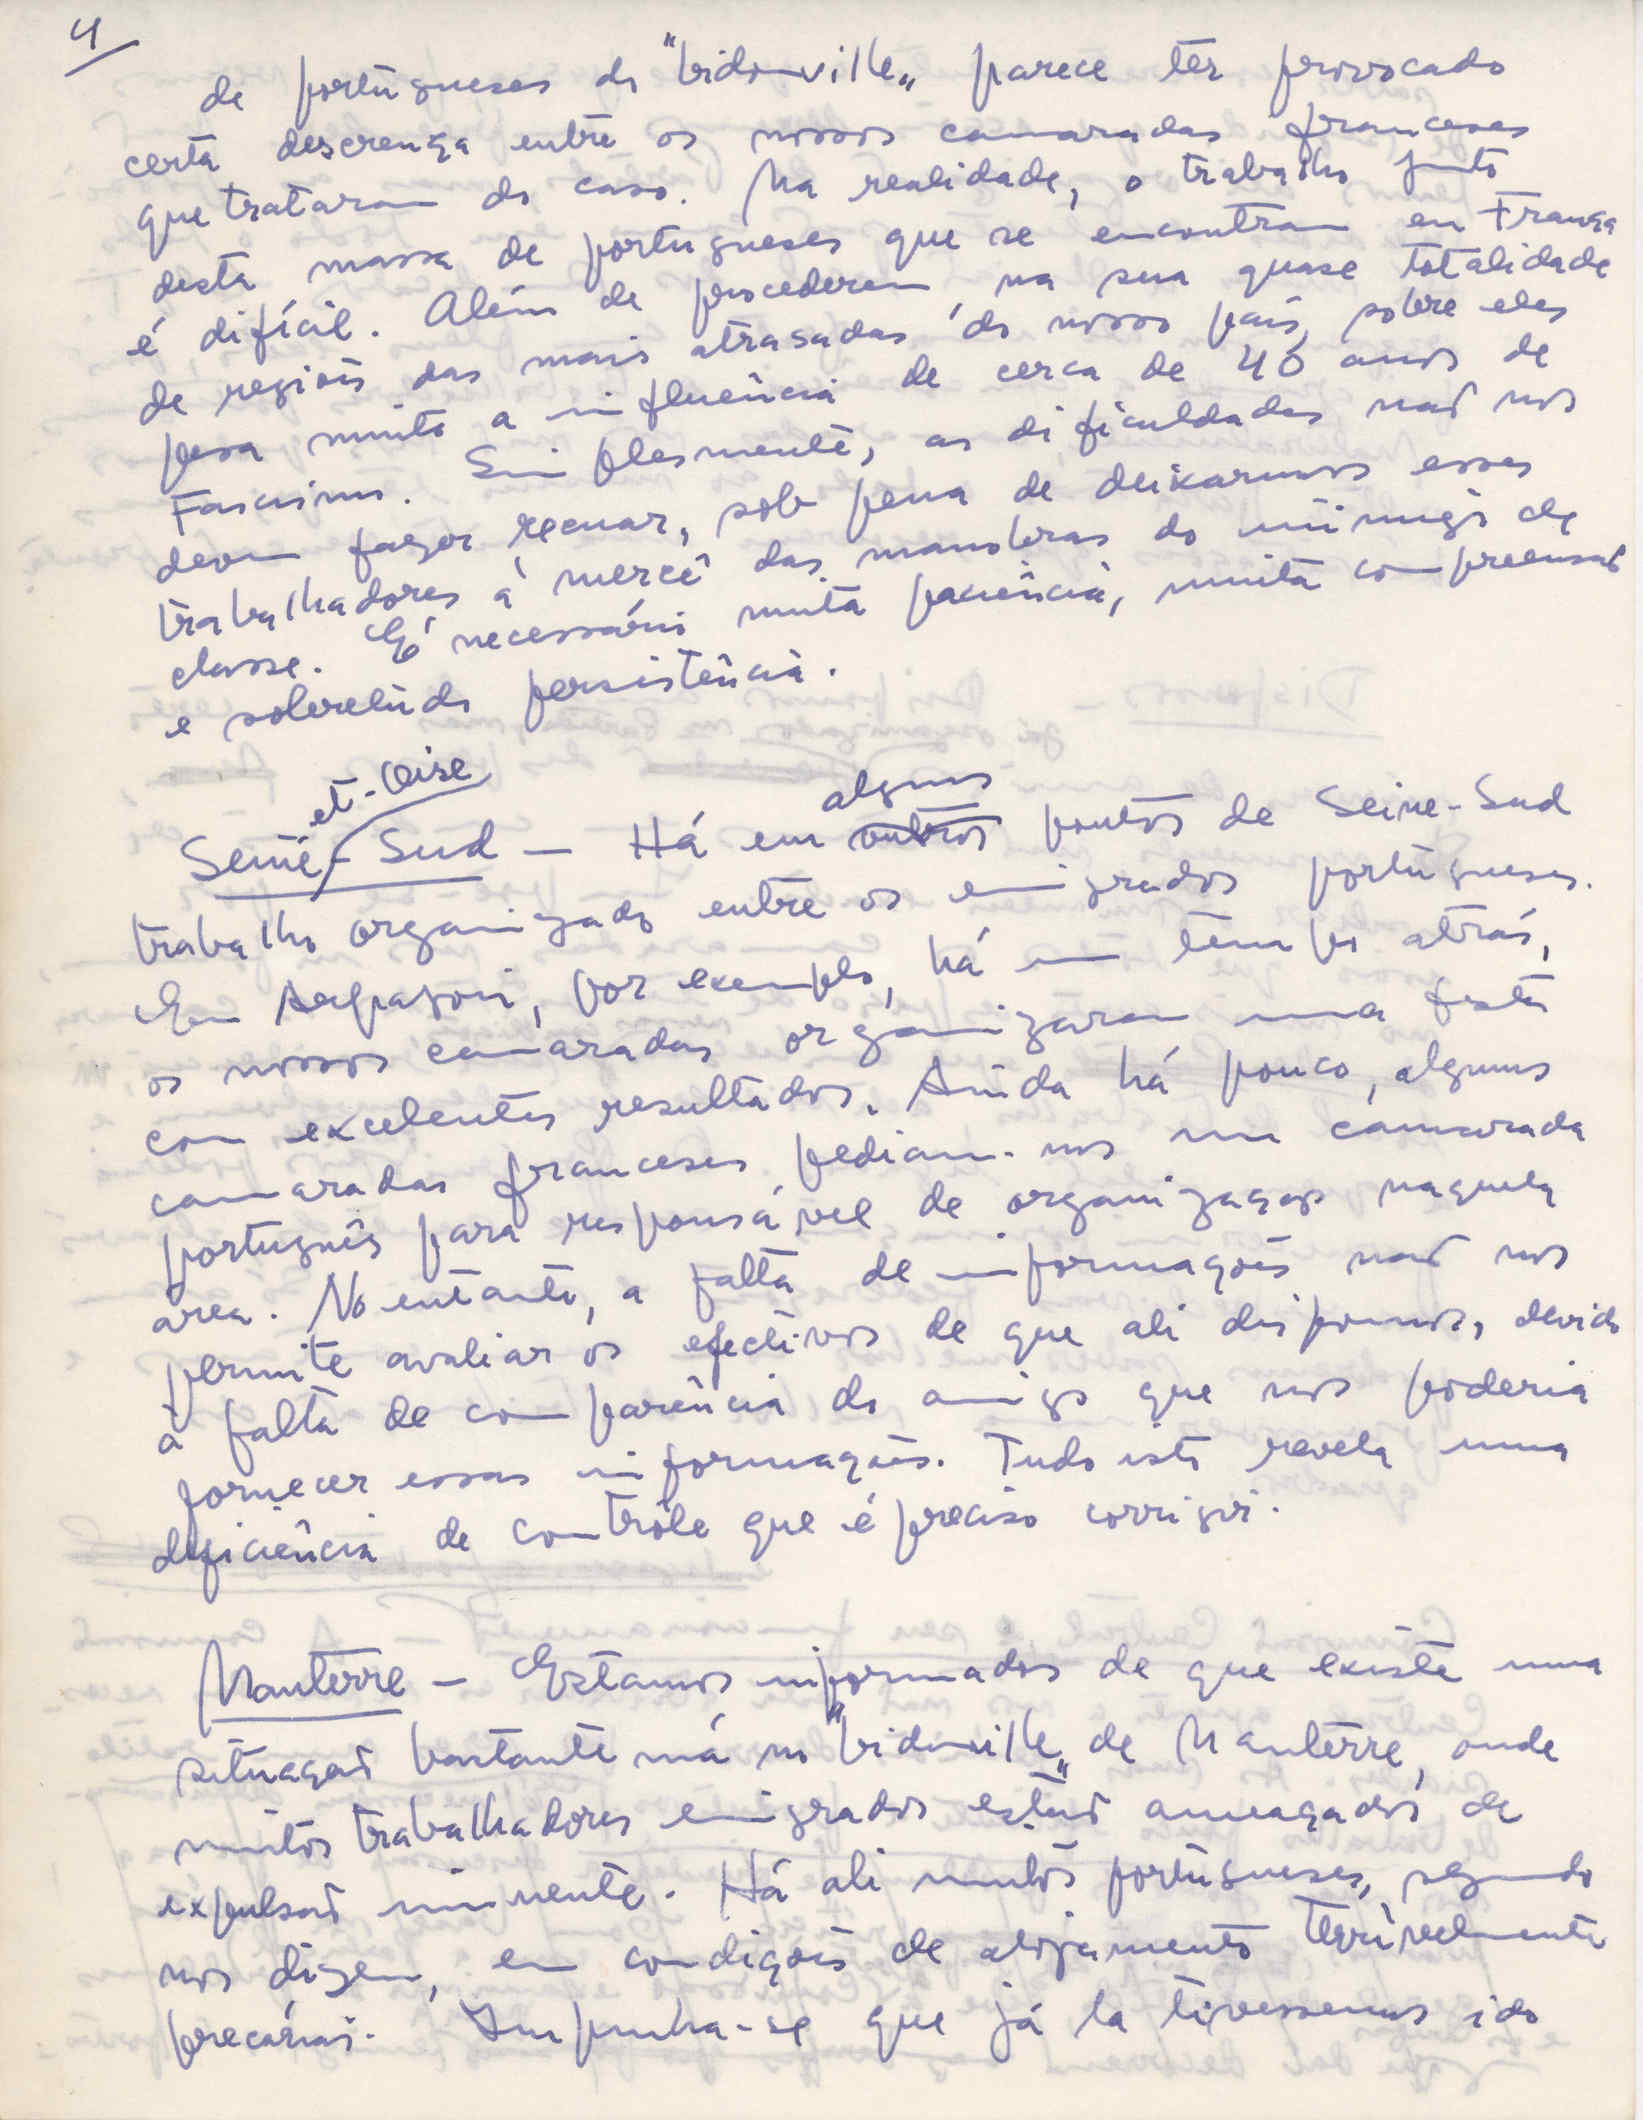 4
de portugueses do "bidonville" parece ter provocado
certa descrença entre os nossos camaradas franceses
que trataram do caso. Na realidade, o trabalho junto
desta massa de portugueses que se encontram em França
é difícil. Além de procederem na sua quase totalidade
de regiões das mais atrasadas do nosso país, sobre eles
pesa muito a influência de cerca de 40 anos de
Fascismo. Simplesmente, as dificuldades não nos
devem fazer recuar, sob pena de deixarmos esses
trabalhadores à mercê das manobras do inimigo de
classe. É necessário muita paciência, muita compreensão
e sobretudo persistência.
et-Oise
alguns
Seine-Sud - Há em outros pontos de Seine-Sud
trabalho organizado entre os emigrados portugueses.
Em Arpajon, por exemplo, há um tempo atrás,
os nossos camaradas organizaram uma festa
com excelentes resultados. Ainda há pouco, alguns
camaradas franceses pediam-nos um camarada
português para responsável de organização naquela
área. No entanto, a falta de informações não nos
permite avaliar os efectivos de que ali dispomos, devido
à falta de comparência do amigo que nos poderia
fornecer essas informações. Tudo isto revela uma
deficiência de contrôle que é preciso corrigir.
Nanterre - Estamos informados de que existe uma
situação bastante má no "bidonville" de Nanterre, onde
muitos trabalhadores emigrados estão ameaçados de
expulsão iminente. Há ali muitos portugueses, segundo
nos dizem, em condições de alojamento terrivelmente
precárias. Impunha-se que já la tivessemos ido